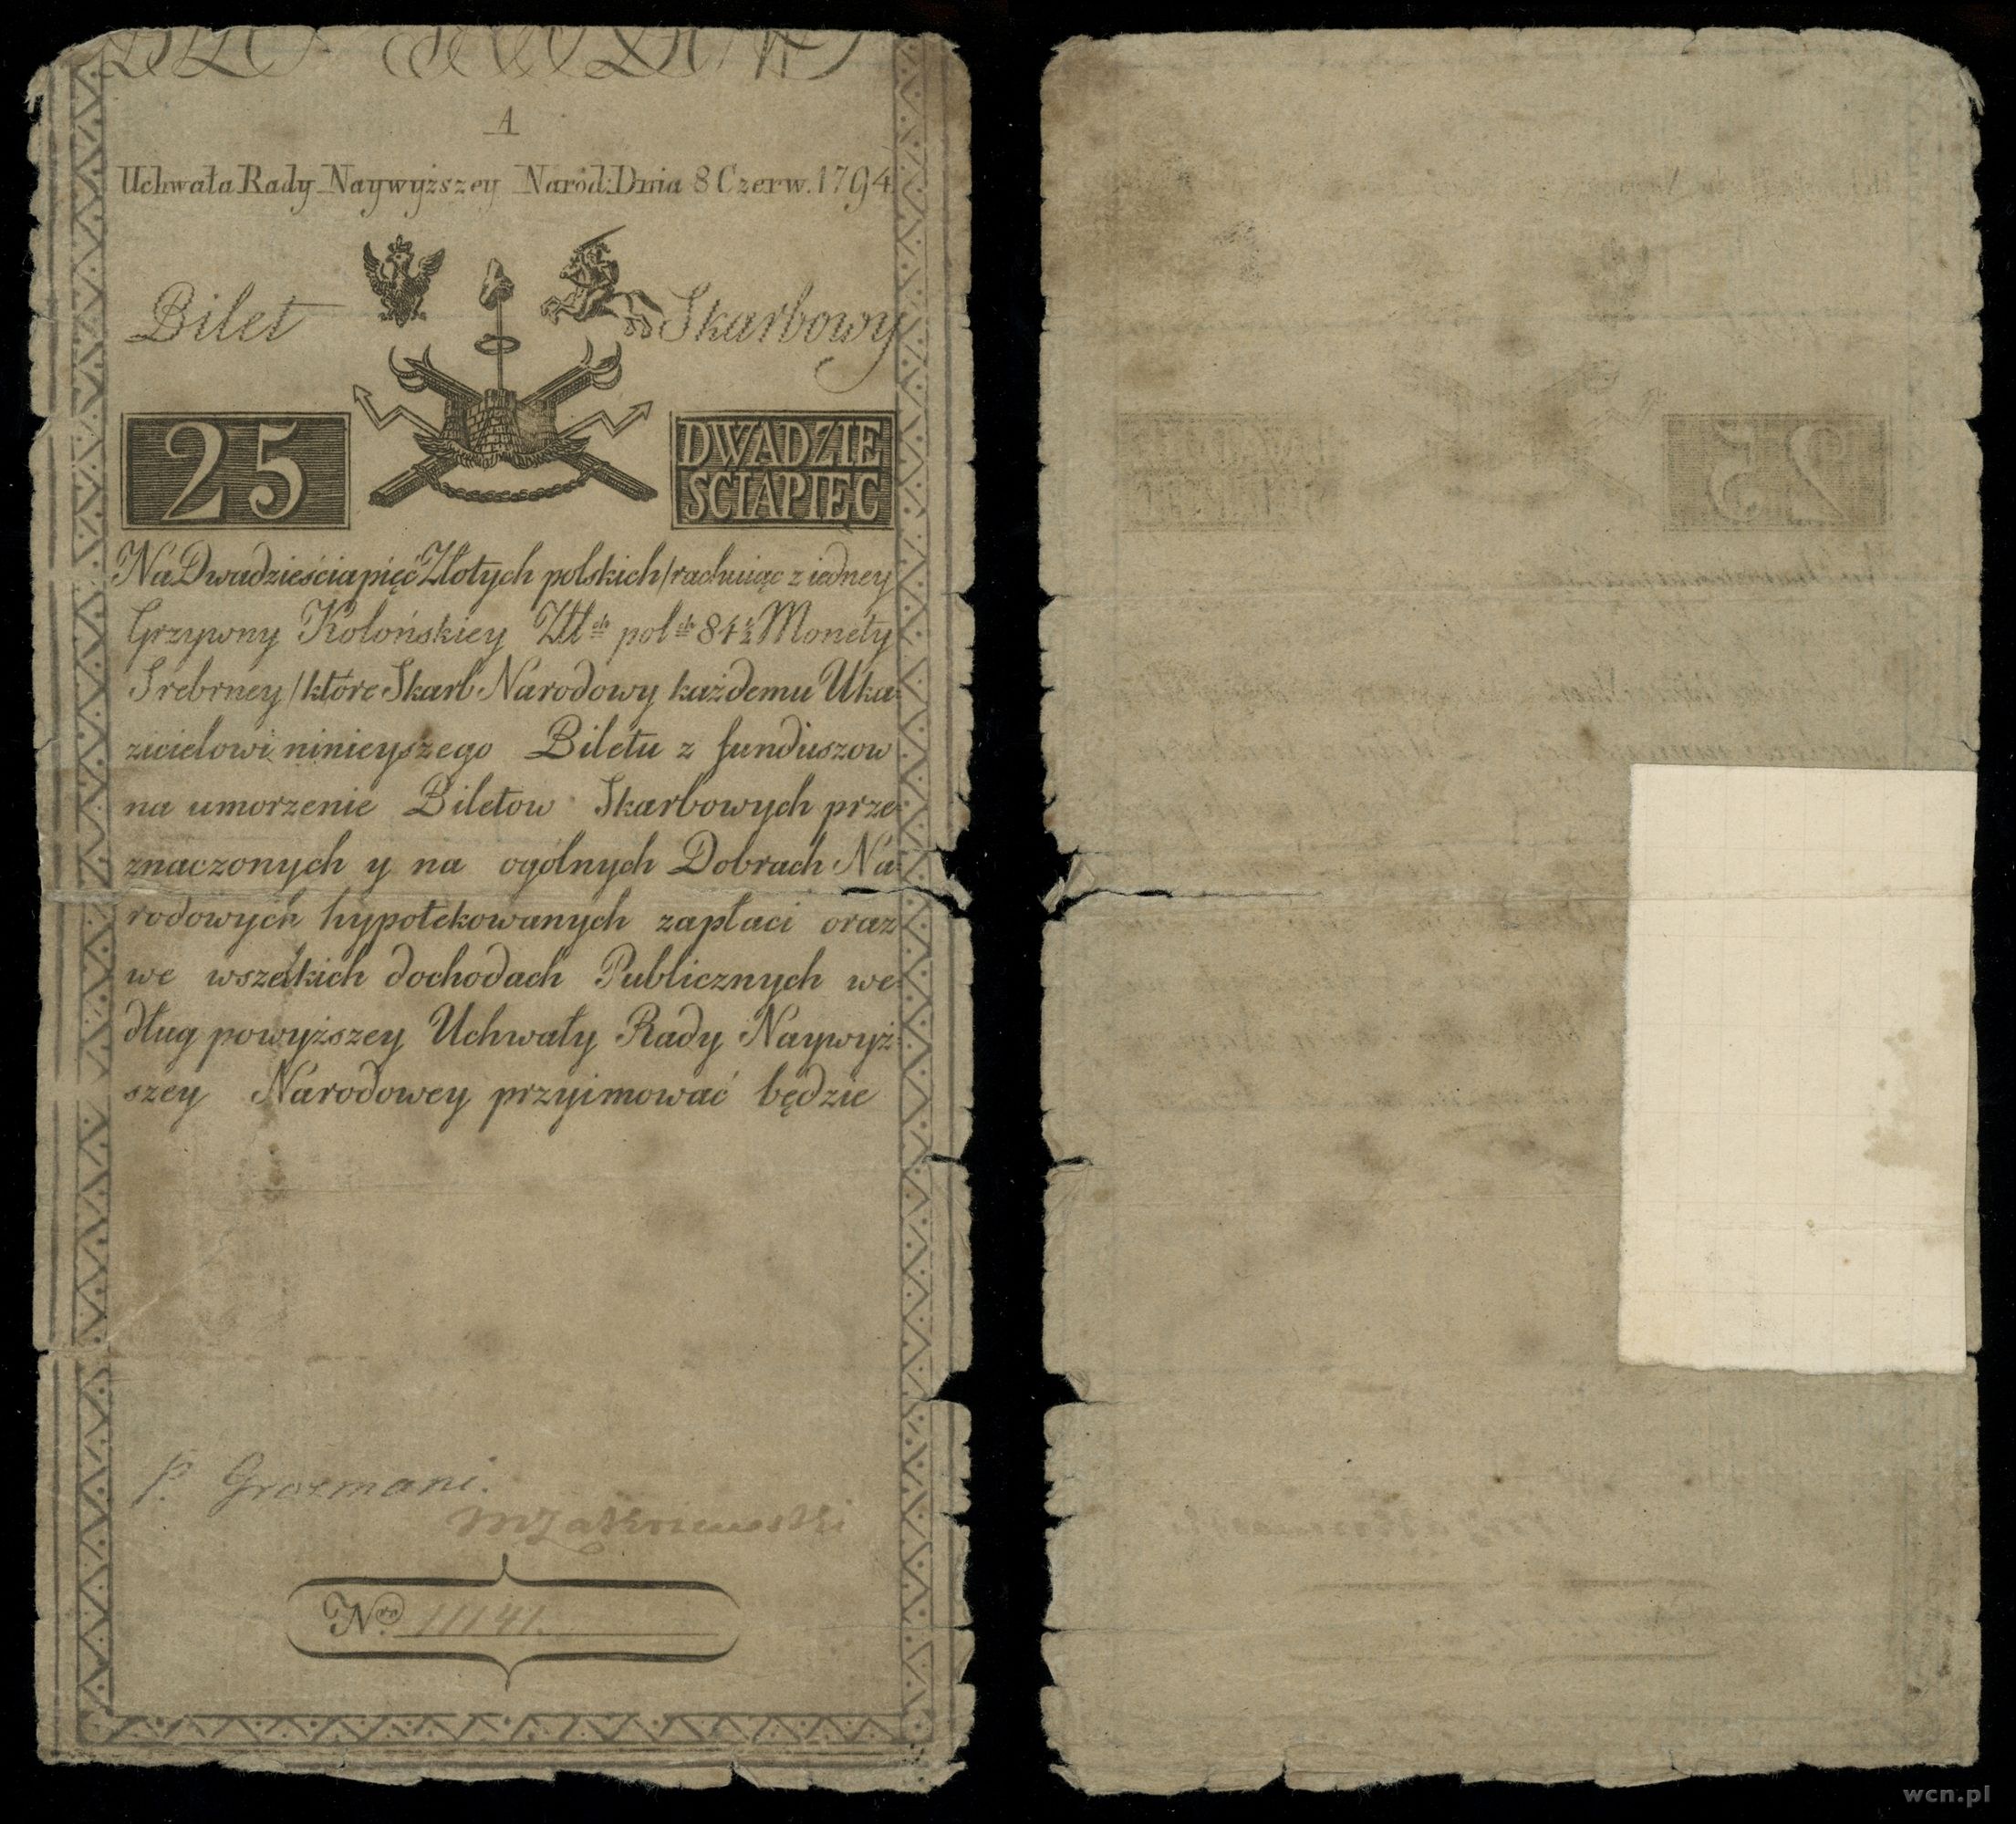 A
Uchwała Rady Naywyższey Naród: Dnia 8 Czerw. 1794
Bilet Skarbowy
25
DWADZIE
SCIAPIĘC
Na Dwadzieściapięć Złotych polskich /rachuiąc z iedney
Grzywny Kolońskiey Złł ch pol ch 84½ Monety
Srebrney/ które Skarb Narodowy każdemu Uka-
zicielowi ninieyszego Biletu z funduszow
na umorzenie Biletow Skarbowych prze-
znaczonych y na ogólnych Dobrach Na-
rodowych hypotekowanych zapłaci oraz
we wszelkich dochodach Publicznych we-
dług powyższey Uchwały Rady Naywyż-
szey Narodowey przyimować będzie
P. Grozmani.
MZakrzewski
Nro 11141.
wcn.pl